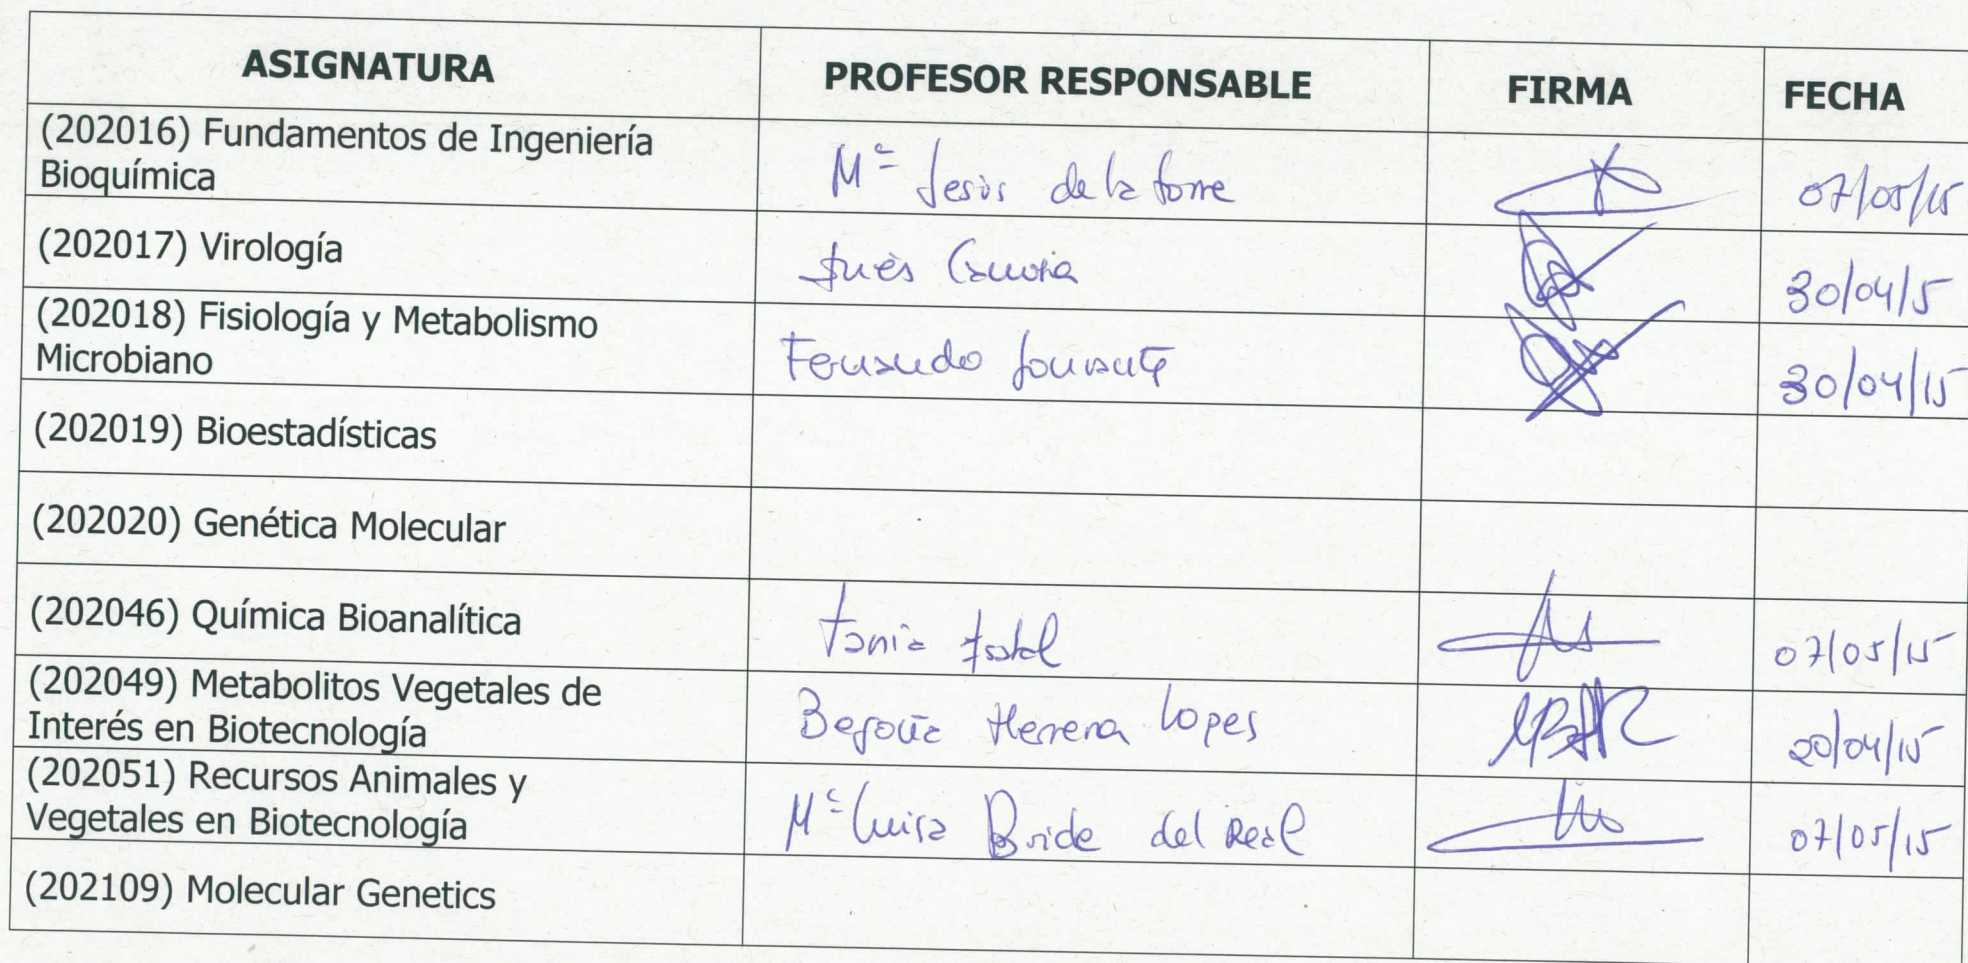 ASIGNATURA PROFESOR RESPONSABLE FIRMA FECHA
(202016) Fundamentos de Ingeniería
Bioquímica
Mª Jesús de la torre 07/05/15
(202017) Virología
Inés 30/04/5
(202018) Fisiología y Metabolismo
Microbiano
Fernando 30/04/15
(202019) Bioestadísticas
(202020) Genética Molecular
(202046) Química Bioanalítica
Tania 07/05/15
(202049) Metabolitos Vegetales de
Interés en Biotecnología
Begoña Herrera Lopes 20/04/15
(202051) Recursos Animales y
Vegetales en Biotecnología
Mª Luisa Bride del Real 07/05/15
(202109) Molecular Genetics